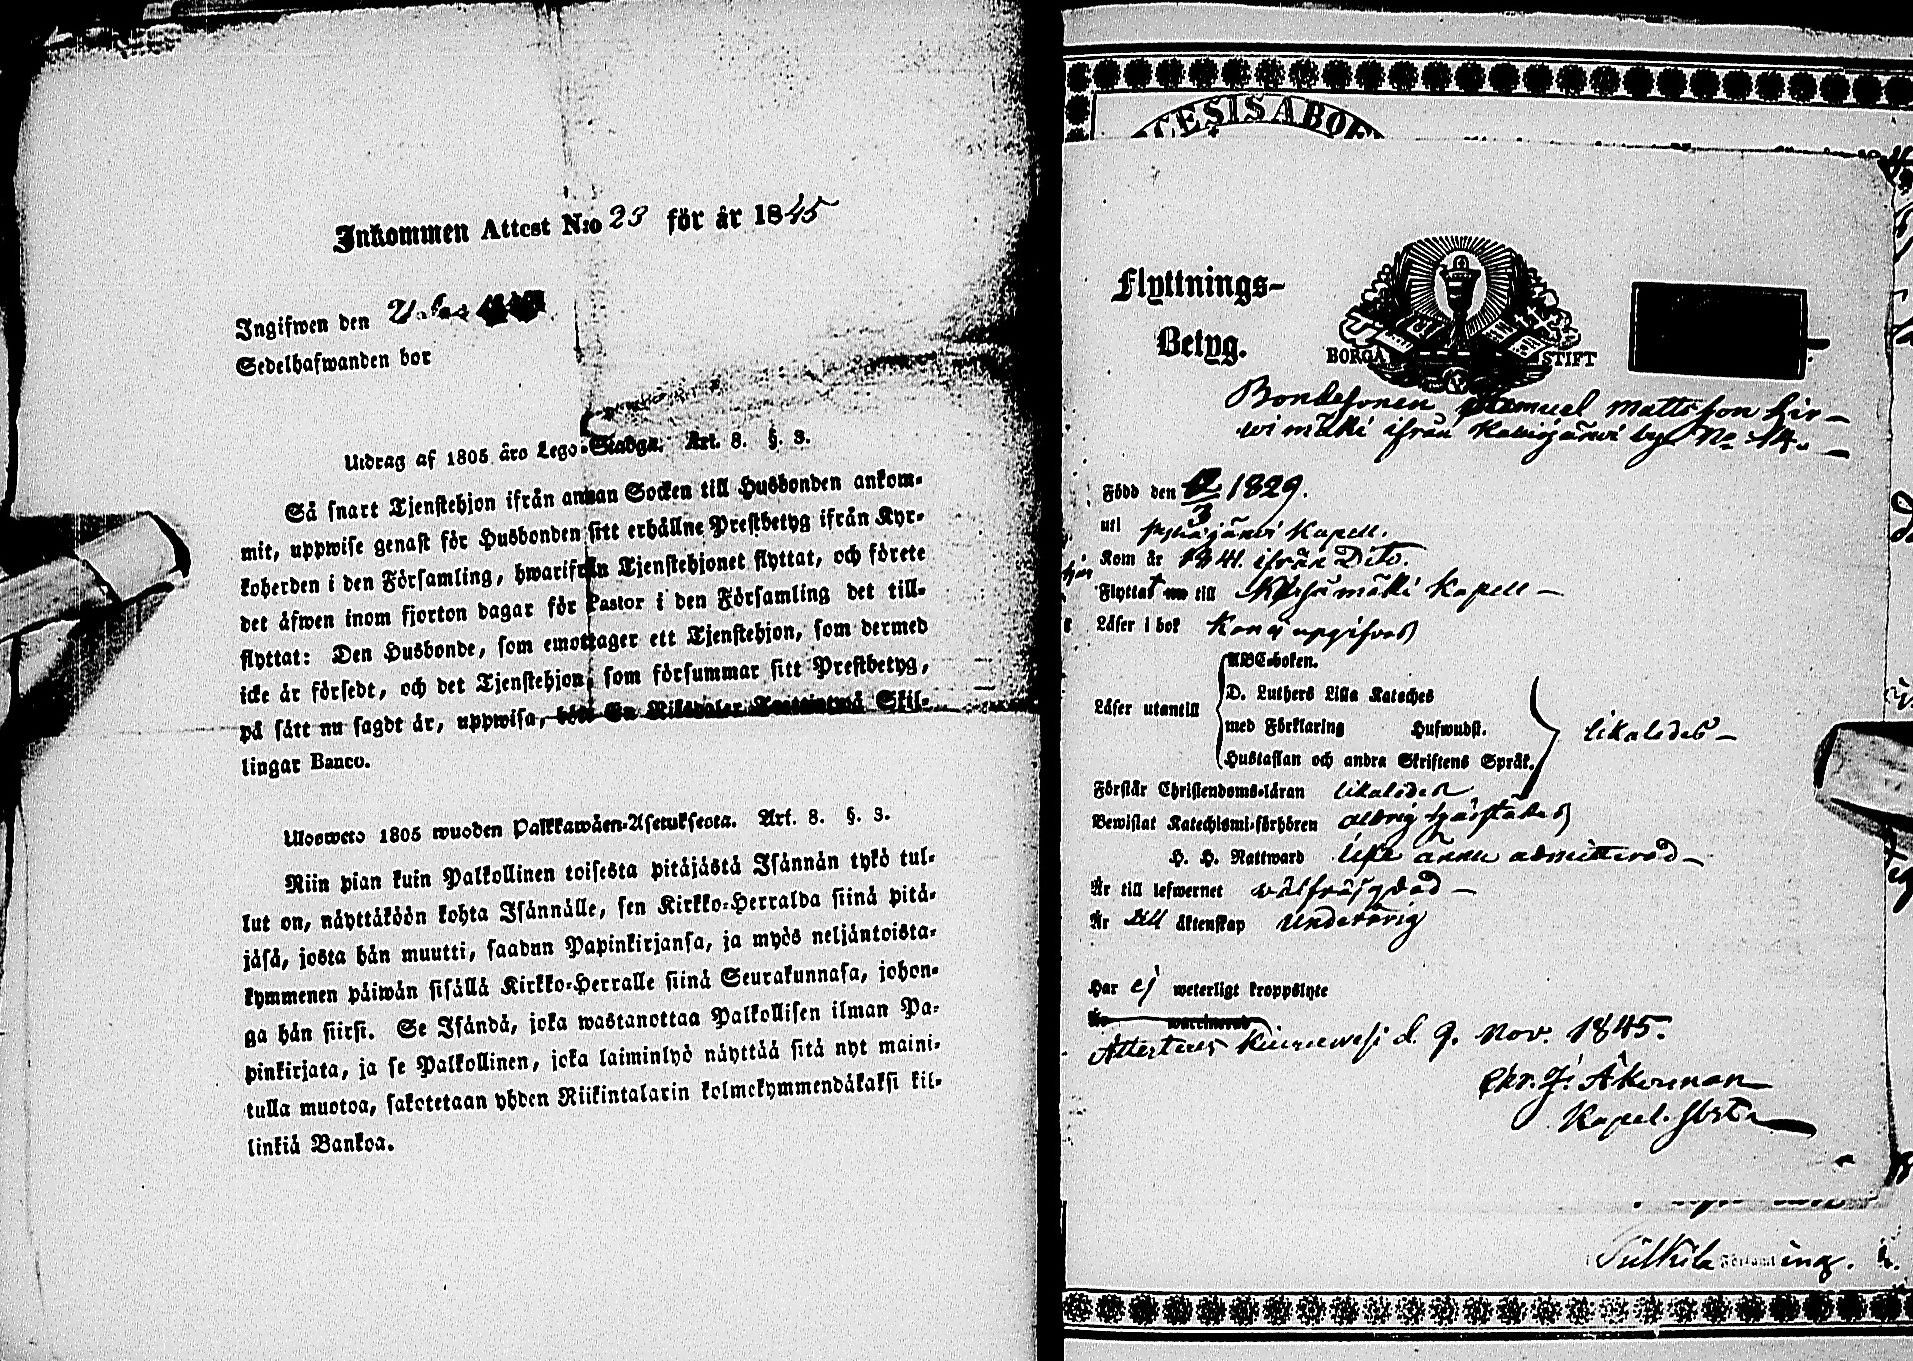 Inkommen Attest N:o 23 för år 1845
Ingifwen den
Sedelhafwanden bor
Utdrag af 1805 års Lego-Stadga. Art. 8. §. 3.
Så snart Tjenstehjon ifrån annan Socken till Husbonden ankom-
mit, uppwise genast för Husbonden sitt erhållne Prestbetyg ifrån Kyr-
koherden i den Församling, hwarifrån Tjenstehjonet flyttat, och förete
det äfwen inom fjorton dagar för Pastor i den Församling det till-
flyttat: Den Husbonde, som emottager ett Tjenstehjon, som dermed
icke är försedt, och det Tjenstehjon, som försummar sitt Prestbetyg,
på sätt nu sagdt är, uppwisa, böte En Riksdaler Trettiotwå Skil-
lingar Banco.
Ulosweto 1805 wuoden Palkkawäen-Asetuksesta. Art. 8. §. 3.
Niin pian kuin Palkollinen toisesta pitäjästä Isännän tykö tul-
lut on, näyttäköön kohta Isännälle, sen Kirkko-Herralda siinä pitä-
jäsä, josta hän muutti, saadun Papinkirjansa, ja myös neljäntoista-
kymmenen päiwän sisällä Kirkko-Herralle siinä Seurakunnasa, johon-
ga hän siirsi. Se Isändä, joka wastanottaa Palkollisen ilman Pa-
pinkirjata, ja se Palkollinen, joka laiminlyö näyttää sitä nyt maini-
tulla muotoa, sakotetaan yhden Riikintalarin kolmekymmendäkaksi kil-
linkiä Bankoa.
CESIS ABOE
Flyttnings-
Betyg.
BORGÅ STIFT
Bondesonen Samuel Mattsson Hir-
wimäki ifrån Kalajärwi by No 14.
Född den 12/3 1829.
uti Kapell.
Kom år 1841. ifrån Dito.
Flyttat nu till Kärsämäki Kapell
Läser i bok Kan ej uppgifvas
Läser utantill
ABC-boken.
D. Luthers Lilla Kateches
med Förklaring Hufwudst.
Hustaflan och andra Skriftens Språk.
likaledes
Förstår Christendoms-läran likaledes
Bewistat Katechismi-förhören aldrig
H. H. Nattward icke ännu admitterad
Är till lefwernet välfräjdad
Är till äktenskap Underårig
Har ej weterligt kroppslyte
Är waccinerad
Attesteras Kiuruwesi d. 9. Nov. 1845.
Chr. J. Åkerman
Kapel.
Pulkkila Församling.